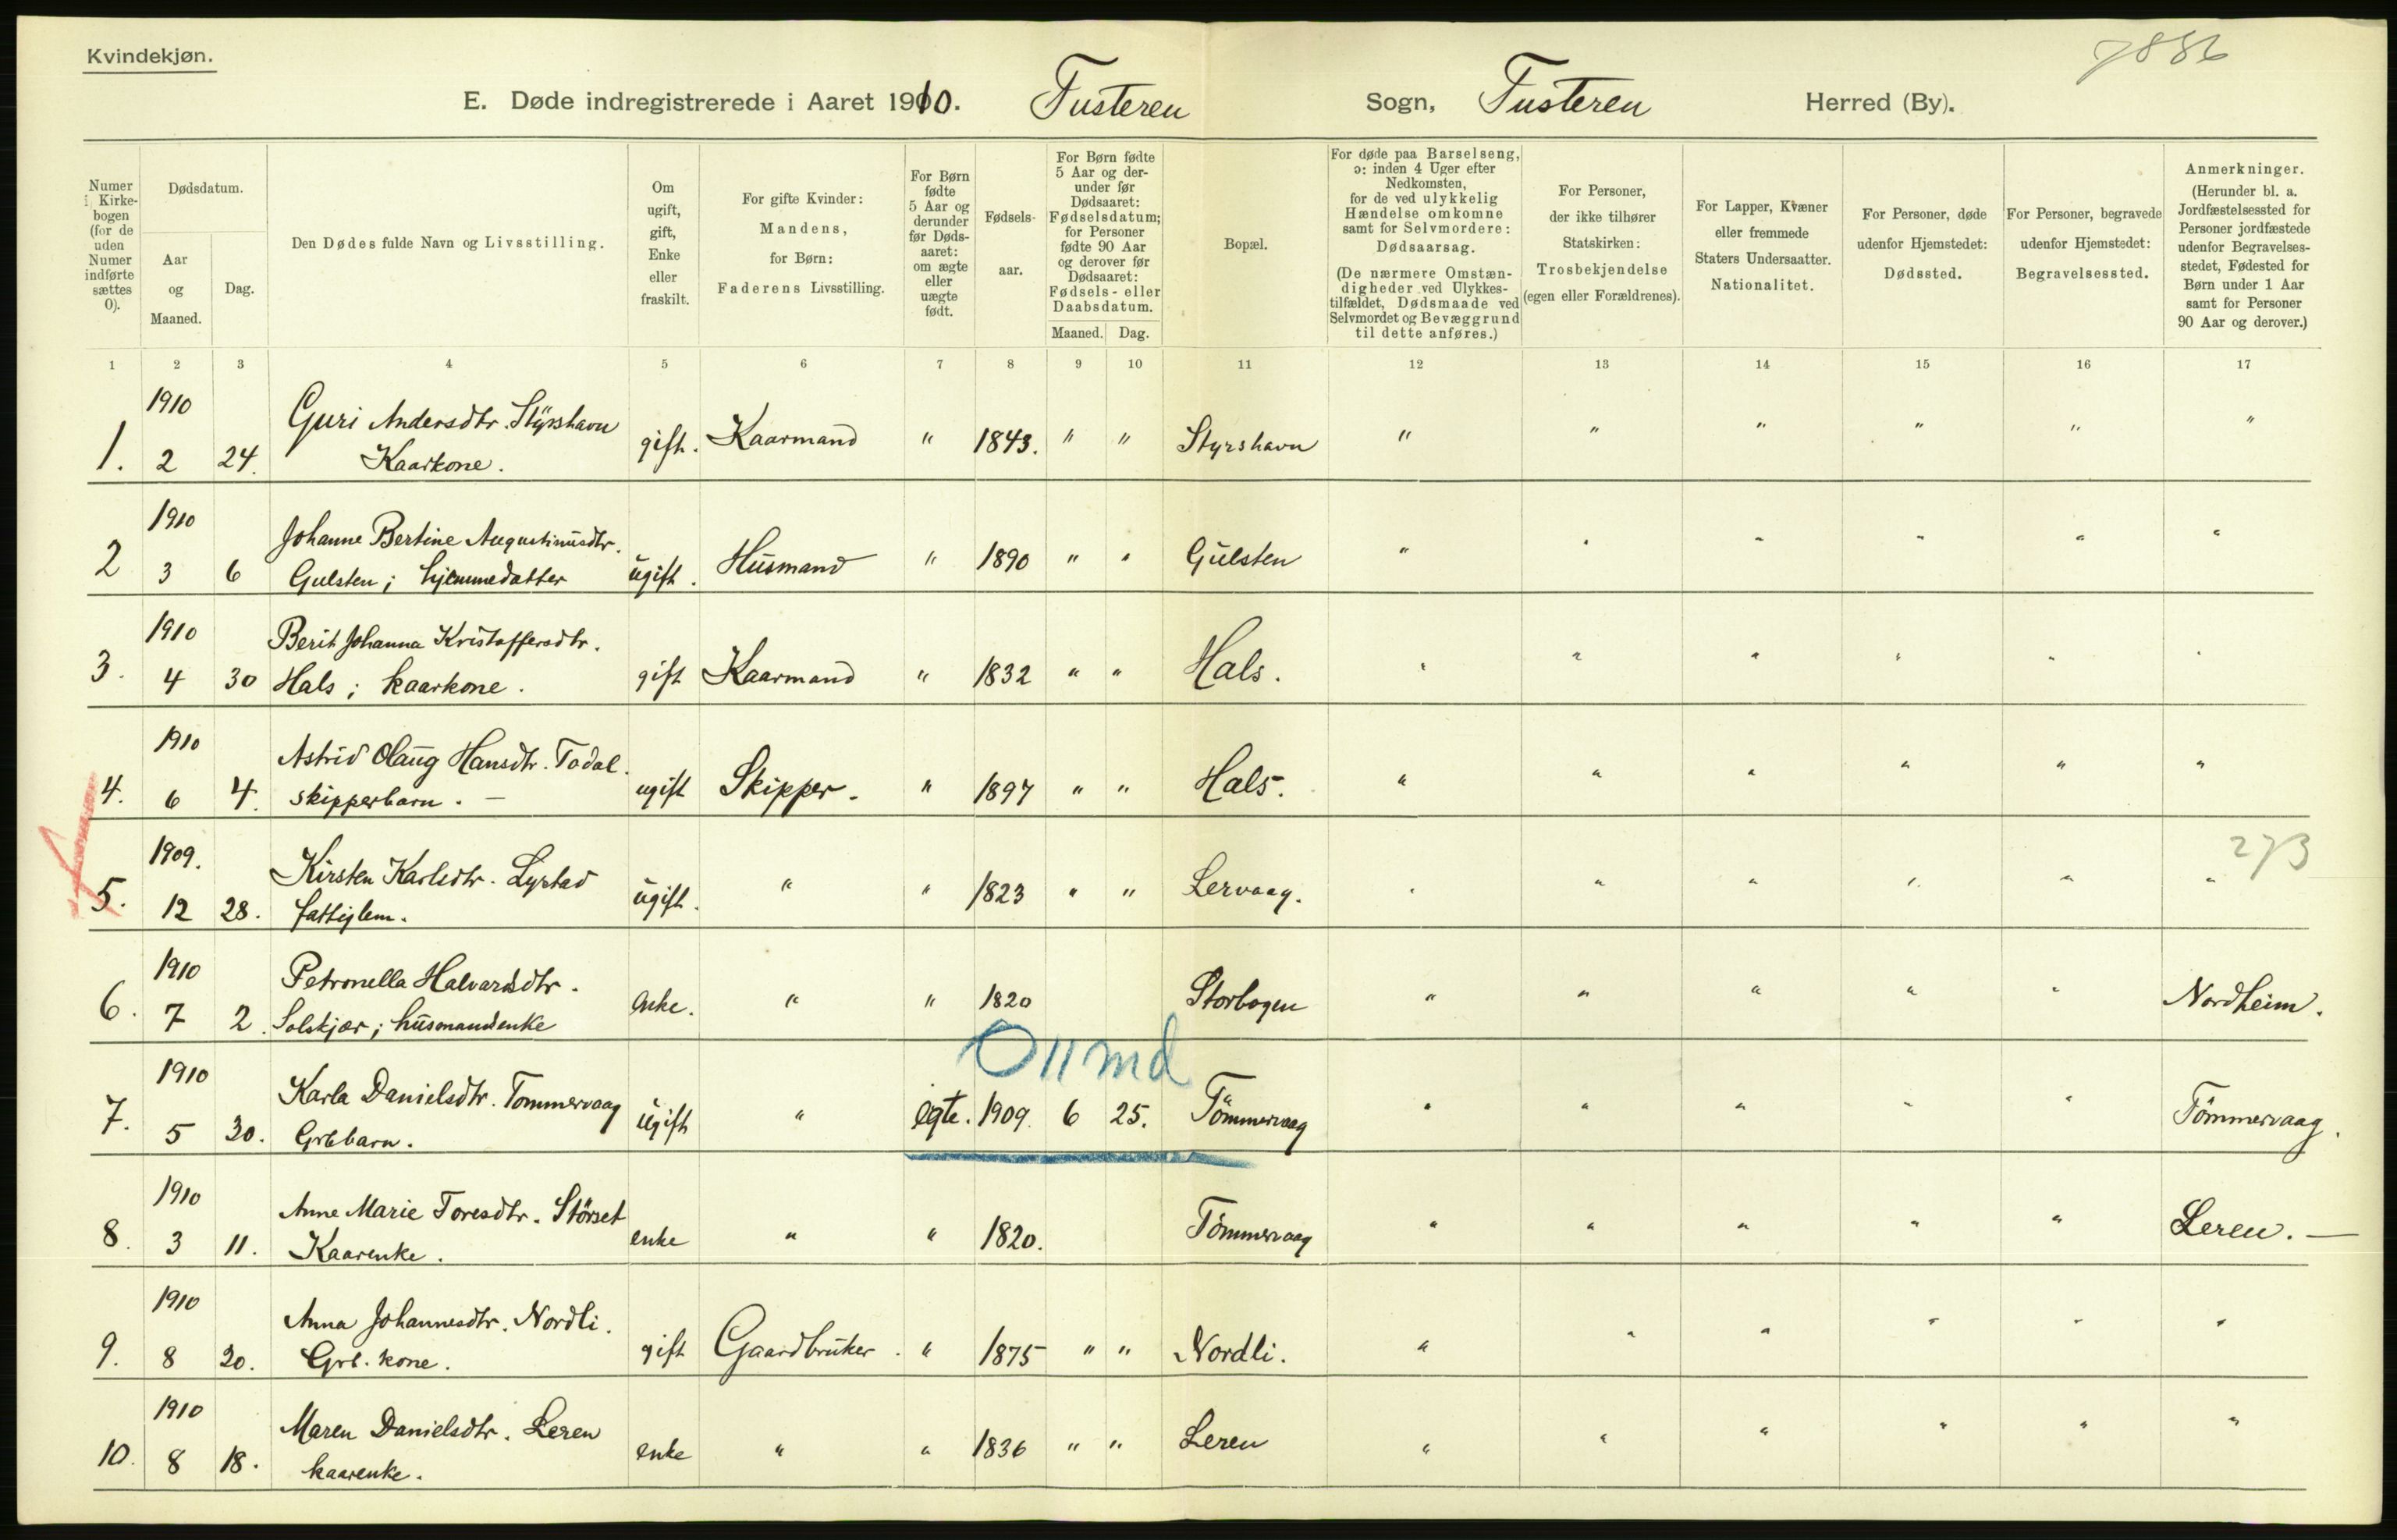 Kvindekjøn.
7886
E. Døde indregistrerede i Aaret 1910. Fusteren Sogn, Fusteren Herred (By).
Numer i Kirkebogen (for de uden Numer indførte sættes 0).
Dødsdatum.
Aar og Maaned.
Dag.
Den Dødes fulde Navn og Livsstilling.
Om ugift, gift, Enke eller fraskilt.
For gifte Kvinder: Mandens, for Børn: Faderens Livsstilling.
For Børn fødte 5 Aar og derunder før Dødsaaret: om ægte eller uægte født.
Fødselsaar.
For Børn fødte 5 Aar og derunder før Dødsaaret: Fødselsdatum; for Personer fødte 90 Aar og derover før Dødsaaret: Fødsels- eller Daabsdatum.
Maaned. Dag.
Bopæl.
For døde paa Barselseng, ɔ: inden 4 Uger efter Nedkomsten, for de ved ulykkelig Hændelse omkomne samt for Selvmordere: Dødsaarsag.
(De nærmere Omstændigheder ved Ulykkestilfældet, Dødsmaade ved Selvmordet og Bevæggrund til dette anføres.)
For Personer, der ikke tilhører Statskirken: Trosbekjendelse (egen eller Forældrenes).
For Lapper, Kvæner eller fremmede Staters Undersaatter. Nationalitet.
For Personer, døde udenfor Hjemstedet: Dødssted.
For Personer, begravede udenfor Hjemstedet: Begravelsessted.
Anmerkninger.
(Herunder bl. a. Jordfæstelsessted for Personer jordfæstede udenfor Begravelsesstedet, Fødested for Børn under 1 Aar samt for Personer 90 Aar og derover.)
1 2 3 4 5 6 7 8 9 10 11 12 13 14 15 16 17
1910 Guri Andersdtr. Styrshavn
1. 2 24. Kaarkone. gift. Kaarmand " 1843. " " Styrshavn " " " " " "
1910 Johanne Bertine Augustinusdtr.
2 3 6 Gulsten; hjemmedatter ugift. Husmand " 1890 " " Gulsten " " " " " "
1910 Berit Johanna Kristoffersdtr.
3. 4 30 Hals; kaarkone. gift Kaarmand " 1832 " " Hals. " " " " " "
1910 Astrid Olaug Hansdtr. Todal.
4. 6 4. skipperbarn. — ugift Skipper. " 1897 " " Hals. " " " " " "
1909. Kirsten Karlsdtr. Lystad 273
5. 12 28. fattiglem. ugift. " " 1823 " " Lervaag. " " " " " "
1910 Petronella Halvardsdtr.
6. 7 2. Solskjær; husmandsenke enke. " " 1820 Storbogen " " " " " Nordheim.
0 11 md
1910 Karla Danielsdtr. Tømmervaag
7. 5 30. Grbbarn. ugift " egte. 1909. 6 25. Tømmervaag " " " " " Tømmervaag.
1910 Anne Marie Toresdtr. Størset
8. 3 11. Kaarenke. enke " " 1820. Tømmervaag " " " " " Leren. —
1910 Anna Johannesdtr. Nordli.
9. 8 20. Grb. kone. gift Gaardbruker. " 1875 " " Nordli. " " " " " "
1910 Maren Danielsdtr. Leren
10. 8 18. kaarenke. enke " " 1836 " " Leren " " " " " "